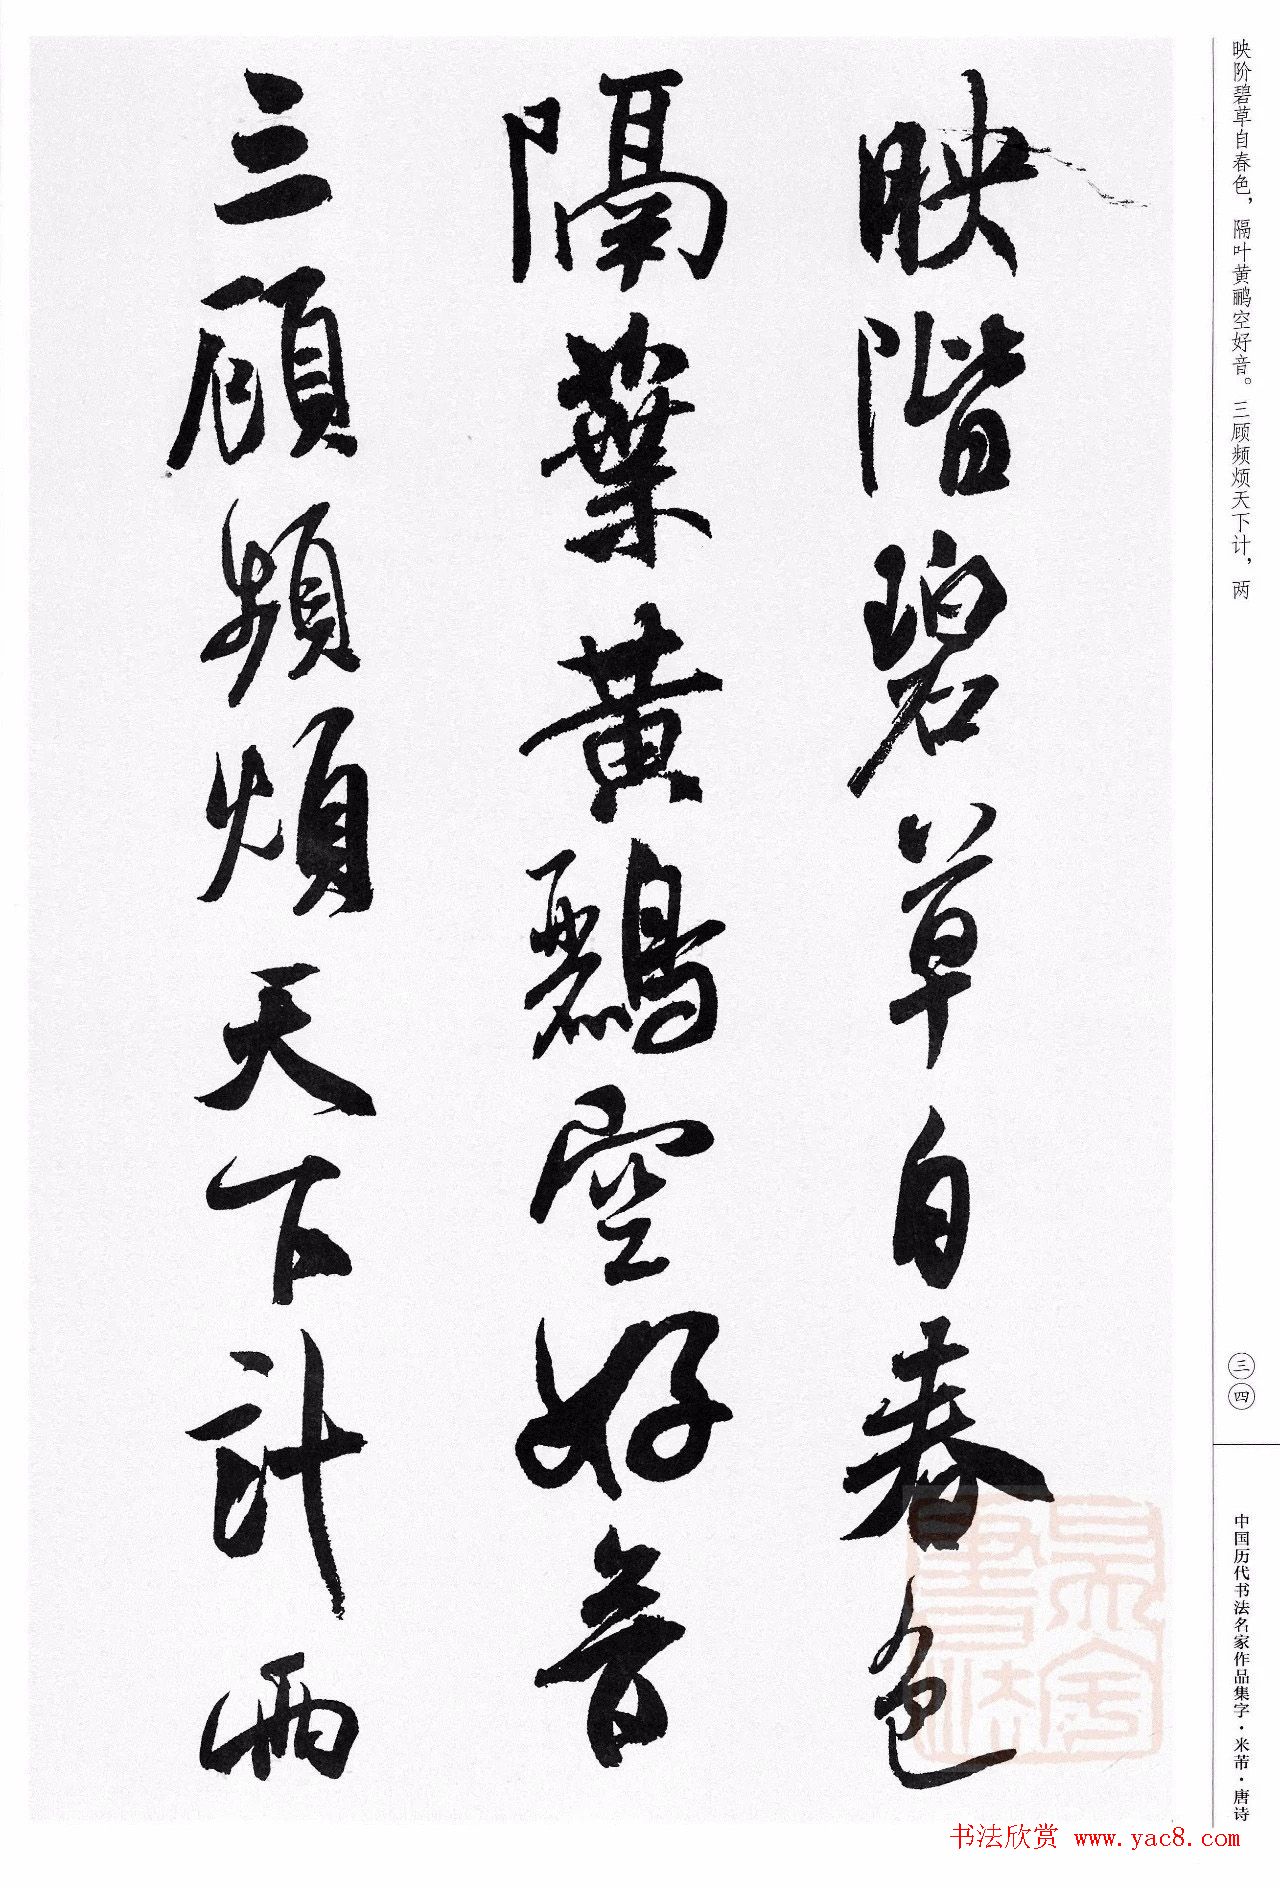 映階碧草自春色
隔葉黃鸝空好音
三顧頻煩天下計兩
映阶碧草自春色，隔叶黄鹂空好音。三顾频烦天下计，两
三四
中国历代书法名家作品集字·米芾·唐诗
书法欣赏 www.yac8.com